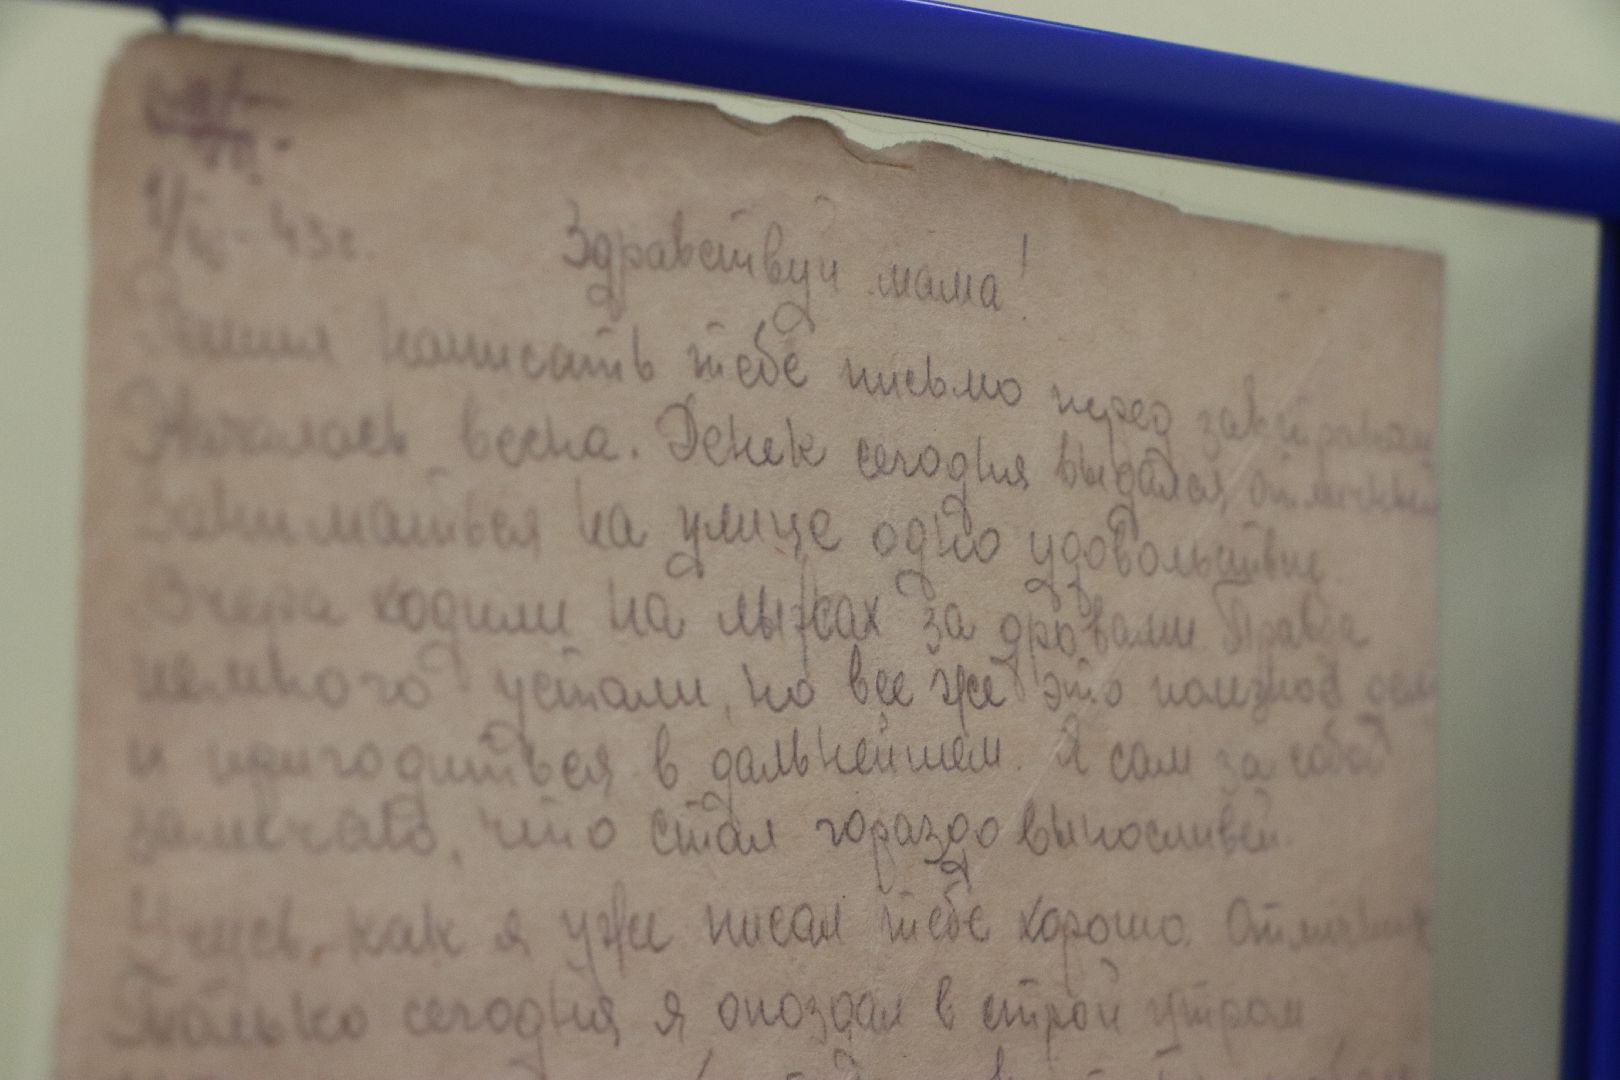 43 г. Здравствуй мама!
Решил написать тебе письмо перед завтраком
Началась весна. Денек сегодня выдался отличный
Заниматься на улице одно удовольствие
Вчера ходили на лыжах за дровами Правда
немного устали, но все же это полезное дело
и пригодиться в дальнейшем. Я сам за собой
замечаю, что стал гораздо выносливей.
Учусь, как я уже писал тебе хорошо. Отличник
Только сегодня я опоздал в строй утром